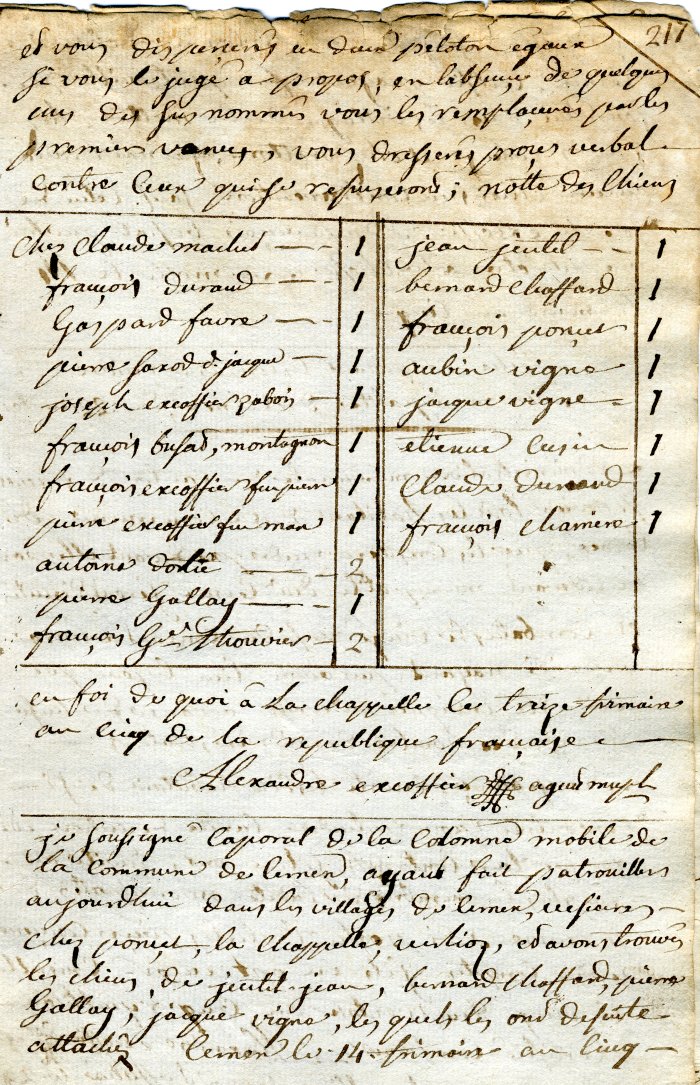 217
et vous disperserés en deux peloton egaux
si vous le jugé à propos, en l'absence de quelques
uns des sus nommés vous les remplacerés par les
premier venus, vous dresserés procés verbal
contre ceux qui se refuserons; notte des chiens
chés Claude machet — 1
françois durand — 1
Gaspard favre — 1
pierre saxod d. jacque — 1
joseph excoffier zabois — 1
françois busat, montagnon 1
françois excoffier fuspierre 1
pierre excoffier fu man 1
antoine — 2
pierre Gallay — 1
françois Gd. Thouvier — 2
jean jentil — 1
bernard Chaffard 1
françois ponçet 1
aubin vigne 1
jacque vigne = 1
etienne cusin 1
Claude durand 1
françois Charriere 1
en foi de quoi à La Chappelle le treize frimaire
an cinq de la republique française —
Alexandre excoffier agent mupl
je soussigné Caporal de la Colomne mobile de
la Commune de lemen, ayant fait patrouillés
aujourdhui dans les villages de lemen, vesiares
Chés ponçet, la Chappelle, verlioz, et avons trouvés
les chiens, de jentil jean, bernard Chaffard, pierre
Gallay, jacque vigne, les quels les ont desuite
attachés lemen le 14 frimaire an Cinq —